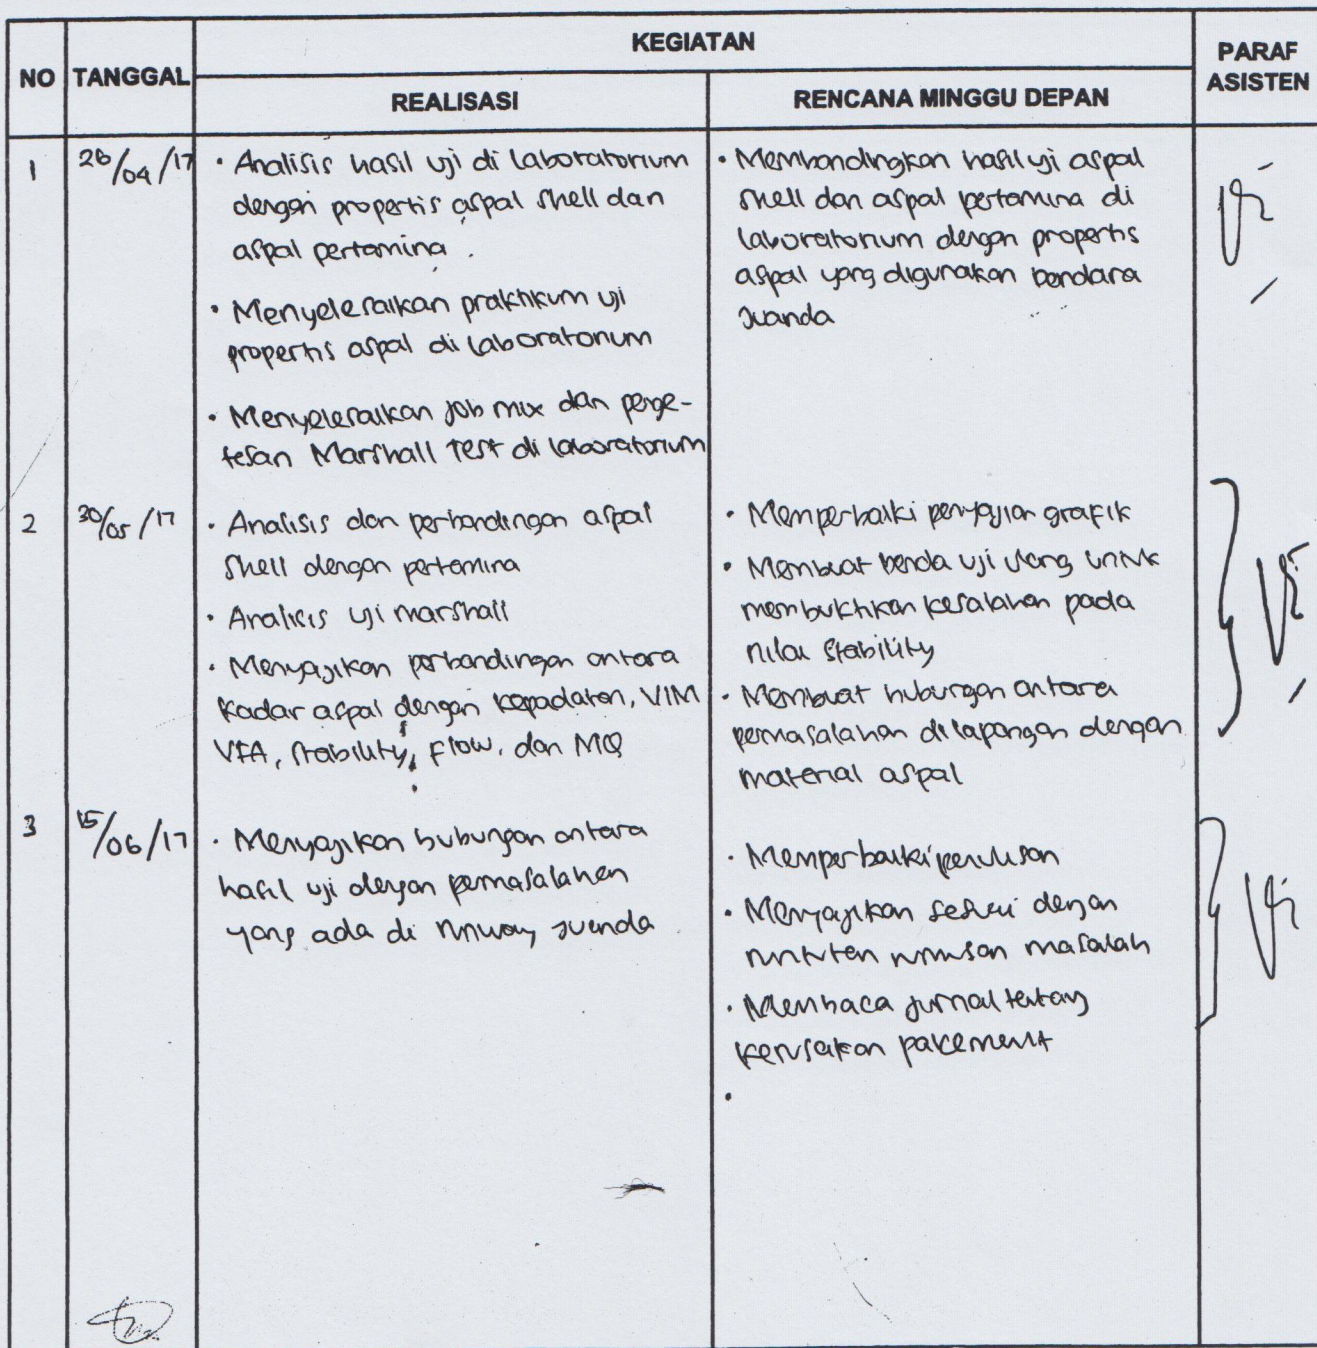 NO
TANGGAL
KEGIATAN
REALISASI
RENCANA MINGGU DEPAN
PARAF
ASISTEN
1
26/04/17
• Analisis hasil uji di laboratorium
dengan propertis aspal shell dan
aspal pertamina.
• Menyelesaikan praktikum uji
propertis aspal di laboratorium
• Menyelesaikan job mix dan penge-
tesan Marshall Test di laboratorium
• Membandingkan hasil uji aspal
shell dan aspal pertamina di
laboratorium dengan propertis
aspal yang digunakan bandara
Juanda
2
30/05/17
• Analisis dan perbandingan aspal
shell dengan pertamina
• Analisis uji marshall
• Menyajikan perbandingan antara
kadar aspal dengan kepadatan, VIM
VFA, stability, flow, dan MQ
• Memperbaiki penyajian grafik
• Membuat benda uji ulang untuk
membuktikan kesalahan pada
nilai stability
• Membuat hubungan antara
permasalahan di lapangan dengan
material aspal
3
15/06/17
• Menyajikan hubungan antara
hasil uji dengan permasalahan
yang ada di runway juanda
• Memperbaiki penulisan
• Menyajikan sesuai dengan
runtutan rumusan masalah
• Membaca jurnal tentang
kerusakan pavement
•